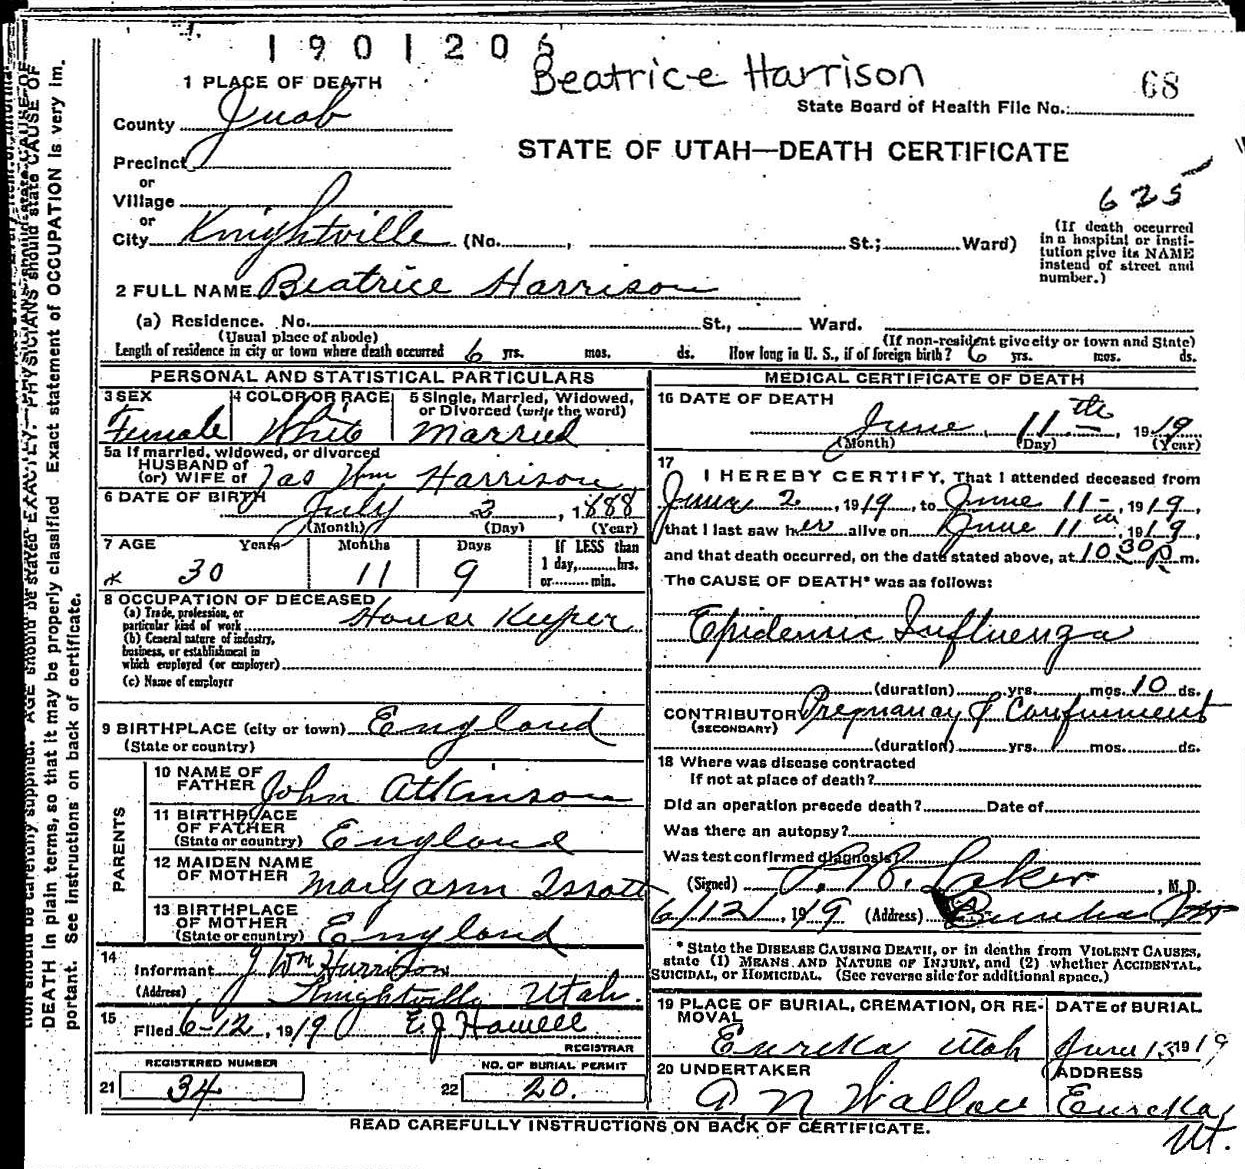 1901206
Beatrice Harrison
68
1 PLACE OF DEATH
State Board of Health File No.:
County Juab
STATE OF UTAH—DEATH CERTIFICATE
Precinct
or
Village
625
or
City Knightville (No. , St.; Ward)
(If death occurred in a hospital or insti-
tution give its NAME
instead of street and
number.)
2 FULL NAME Beatrice Harrison
(a) Residence. No. St., Ward.
(Usual place of abode) (If non-resident give city or town and State)
Length of residence in city or town where death occurred 6 yrs. mos. ds. How long in U. S., if of foreign birth? 6 yrs. mos. ds.
PERSONAL AND STATISTICAL PARTICULARS
3 SEX Female
4 COLOR OR RACE White
5 Single, Married, Widowed,
or Divorced (write the word)
Married
5a If married, widowed, or divorced
HUSBAND of
(or) WIFE of Jas Wm Harrison
6 DATE OF BIRTH July 2, 1888
(Month) (Day) (Year)
7 AGE Years Months Days If LESS than
1 day, hrs.
or min.
30 11 9
8 OCCUPATION OF DECEASED
(a) Trade, profession, or
particular kind of work House Keeper
(b) General nature of industry,
business, or establishment in
which employed (or employer)
(c) Name of employer
9 BIRTHPLACE (city or town) England
(State or country)
PARENTS
10 NAME OF
FATHER John Atkinson
11 BIRTHPLACE
OF FATHER
(State or country) England
12 MAIDEN NAME
OF MOTHER Mary Ann Issott
13 BIRTHPLACE
OF MOTHER
(State or country) England
14
Informant J Wm Harrison
(Address) Knightville, Utah.
15
Filed 6-12, 1919 E.J Howell
REGISTRAR
REGISTERED NUMBER
21 34
NO. OF BURIAL PERMIT
22 20.
MEDICAL CERTIFICATE OF DEATH
16 DATE OF DEATH
June, 11th, 1919
(Month) (Day) (Year)
17
I HEREBY CERTIFY, That I attended deceased from
June 2, 1919, to June 11-, 1919,
that I last saw her alive on June 11th, 1919,
and that death occurred, on the date stated above, at 10 30 p m.
The CAUSE OF DEATH* was as follows:
Epidemic Influenza
(duration) yrs. mos. 10 ds.
CONTRIBUTORY Pregnancy & Confinement
(SECONDARY)
(duration) yrs. mos. ds.
18 Where was disease contracted
If not at place of death?
Did an operation precede death? Date of
Was there an autopsy?
Was test confirmed diagnosis?
(Signed) Laker, M. D.
6/12/, 1919 (Address) Eureka Ut
* State the DISEASE CAUSING DEATH, or in deaths from VIOLENT CAUSES,
state (1) MEANS AND NATURE OF INJURY, and (2) whether ACCIDENTAL,
SUICIDAL, or HOMICIDAL. (See reverse side for additional space.)
19 PLACE OF BURIAL, CREMATION, OR RE-
MOVAL
Eureka Utah
DATE of BURIAL
June 13 1919
20 UNDERTAKER
A N Wallace
ADDRESS
Eureka,
Ut.
READ CAREFULLY INSTRUCTIONS ON BACK OF CERTIFICATE.
tion should be carefully supplied. AGE should be stated EXACTLY. PHYSICIANS should state CAUSE OF
DEATH in plain terms, so that it may be properly classified. Exact statement of OCCUPATION is very im.
portant. See instructions on back of certificate.